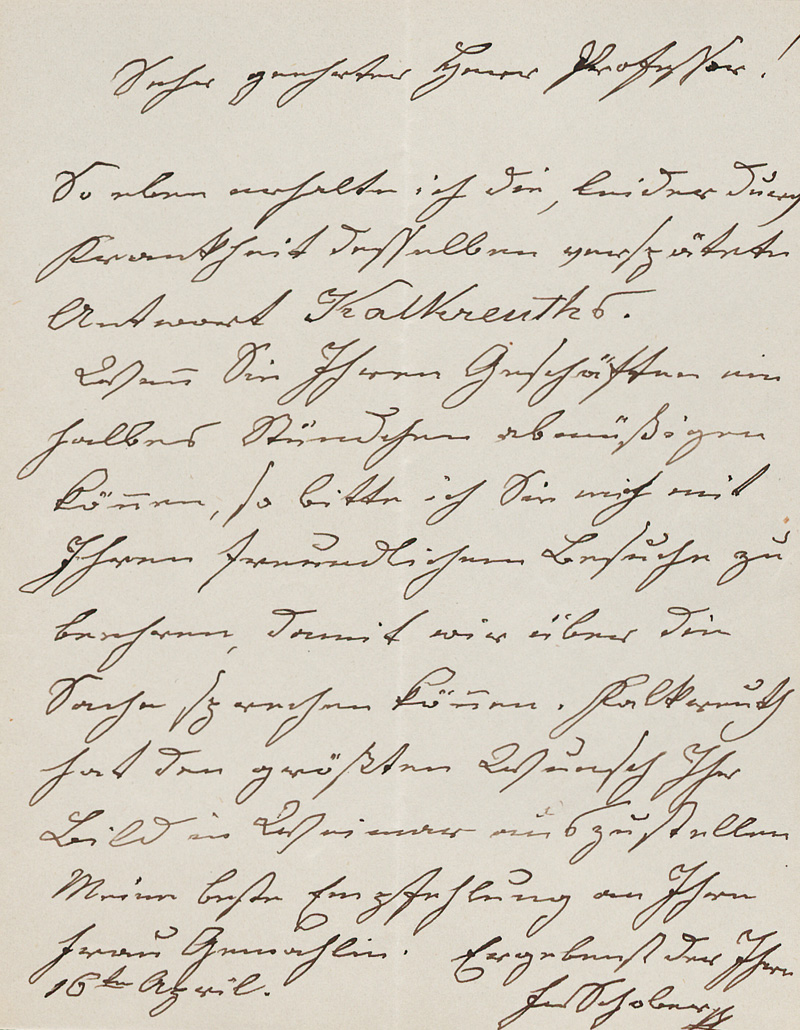 Sehr geehrter Herr Professor!
So eben erhalte ich die, leider durch
Krankheit desselben verspätete
Antwort Kalkreuths.
Wenn Sie Ihren Geschäften ein
halbes Stündchen abmüßigen
können, so bitte ich Sie mich mit
Ihrem freundlichem Besuche zu
beehren, damit wir über die
Sache sprechen können. Kalkreuth
hat den größten Wunsch Ihr
Bild in Weimar auszustellen
Meine beste Empfehlung an Ihre
Frau Gemahlin. Ergebenst der Ihre
16ten April. FvSchober